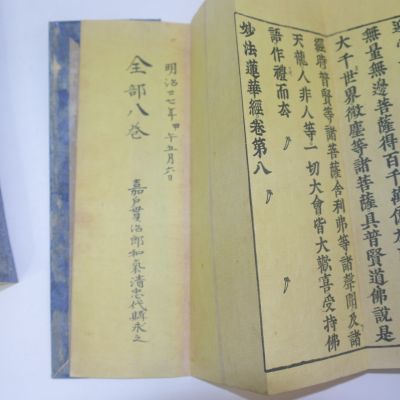 無量無邊菩薩得百千萬億
大千世界微塵等諸菩薩具普賢道佛說是
經時普賢等諸菩薩舍利弗等諸聲聞及諸
天龍人非人等一切大會皆大歡喜受持佛
語作禮而去
妙法蓮華經卷第八
明治廿七年 午五月六日
全部八巻
嘉戸 治郎和氣清忠代 永之